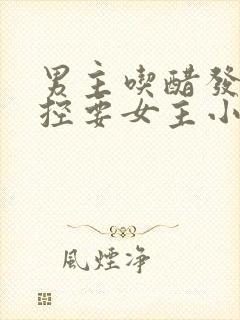 男主喫醋發
控要女主小
風煙净